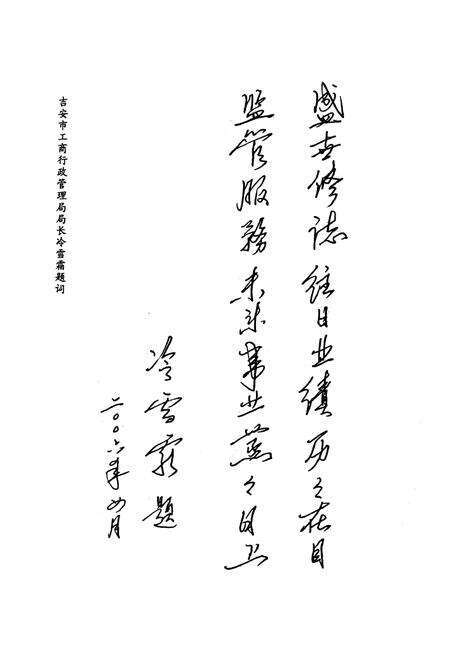 盛世修誌往日业績历々在目
监管服務未来事业蒸々日上
冷雪霜题
二〇〇六年四月
吉安市工商行政管理局局长冷雪霜题词